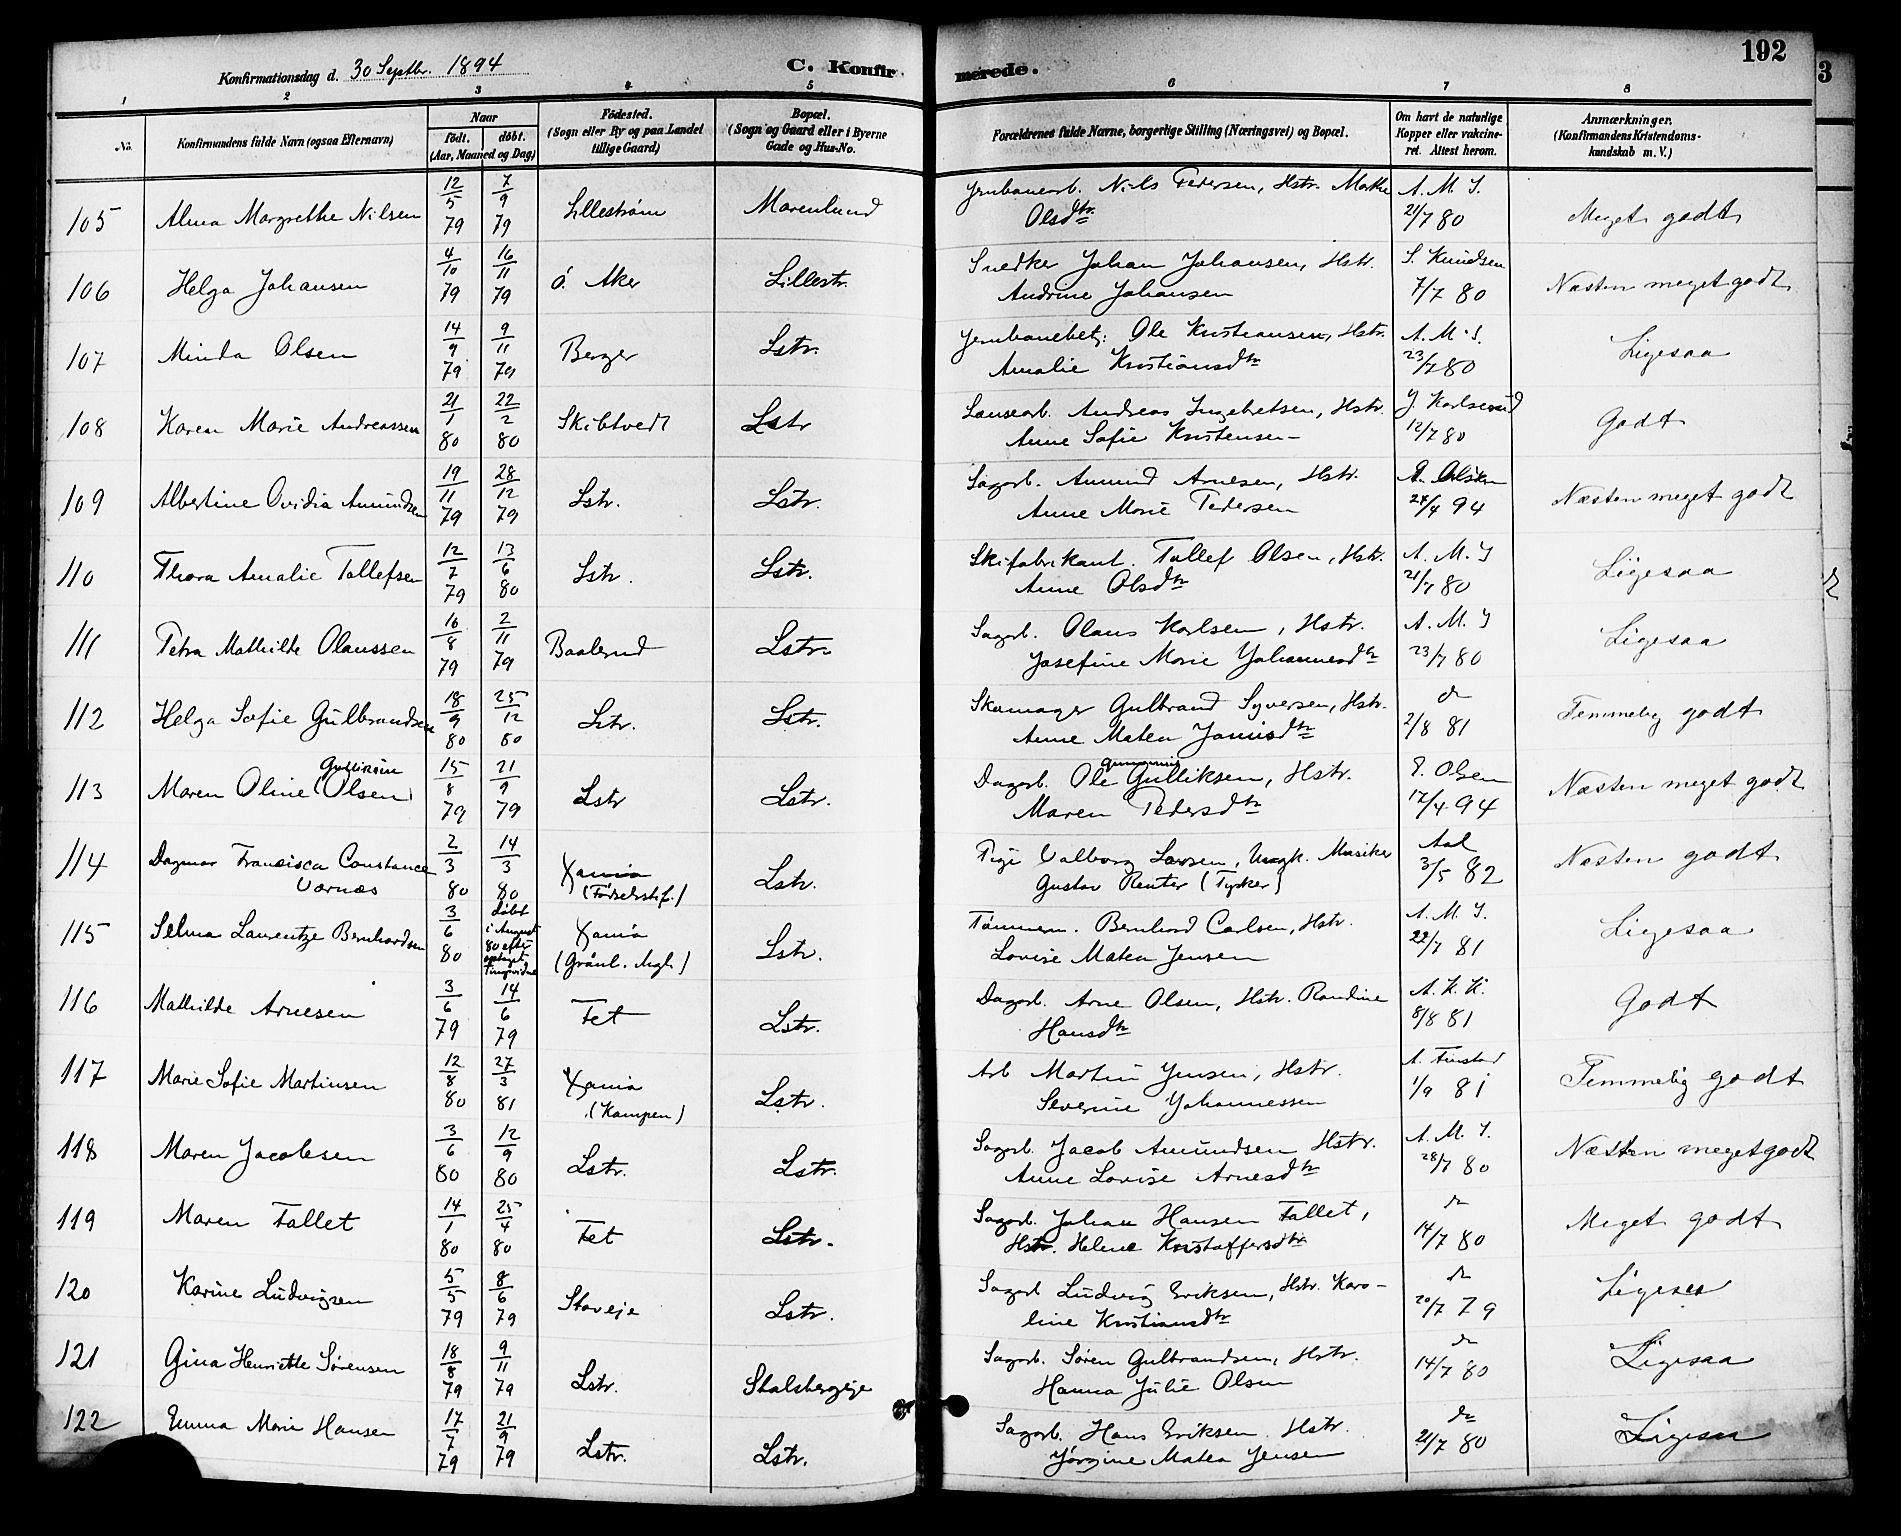 192
3
Konfirmationsdag d. 30 Septbr. 1894
C. Konfirmerede.
1 2 3 4 5 6 7 8
No. Konfirmandens fulde Navn (ogsaa Efternavn) Naar født. døbt. (Aar, Maaned og Dag) Fødested. (Sogn eller By og paa Landet tillige Gaard) Bopæl. (Sogn og Gaard eller i Byerne Gade og Hus-No. Forældrenes fulde Navne, borgerlige Stilling (Næringsvei) og Bopæl. Om havt de naturlige Kopper eller vaccineret. Attest herom. Anmærkninger. (Konfirmandens Kristendomskundskab m. V.)
105 Alma Margrethe Nilsen 12/5 79 7/9 79 Lillestrøm Marenlund Jernbanearb. Niels Pedersen, Hstr. Marthe Olsdtr. A. M. J. 21/7 80 Meget godt
106 Helga Johansen 4/10 79 16/11 79 Ø. Aker Lillestr. Snedker Johan Johansen, Hstr. Andrine Johansen S. Knudsen 7/7 80 Næsten meget godt
107 Minda Olsen 14/9 79 9/11 79 Berger Lstr. Jernbanebetj. Ole Kristiansen, Hstr. Amalie Kristiansdtr A. M. J. 23/7 80 Ligesaa
108 Karen Marie Andreassen 21/1 80 22/2 80 Skibtvedt Lstr Lænsearb. Andreas Ingebretsen, Hstr. Anne Sofie Kristensen J. Karlsrud 12/7 80 Godt
109 Albertine Ovidia Amundsen 19/11 79 28/12 79 Lstr. Lstr. Sagarb. Amund Arnesen, Hstr. Anne Marie Pedersen P. Olsen 24/4 94 Næsten meget godt
110 Thora Amalie Tollefsen 12/7 79 13/6 80 Lstr. Lstr. Skifabrikant. Tollef Olsen, Hstr. Anne Olsdtr A. M. J 21/7 80 Ligesaa
111 Petra Mathilde Olaussen 16/8 79 2/11 79 Baalerud Lstr. Sagarb. Olaus Karlsen, Hstr. Josefine Marie Johannesdtr A. M. J 23/7 80 Ligesaa
112 Helga Sofie Gulbrandsen 18/9 80 25/12 80 Lstr. Lstr. Skomager Gulbrand Syversen, Hstr. Anne Matea Jonisdtr do 2/8 81 Temmelig godt
113 Maren Oline (Olsen) Gulliksen 15/8 79 21/9 79 Lstr Lstr. Dagarb. Ole Gulliksen, Hstr. Maren Pedersdtr P. Olsen 17/4 94 Næsten meget godt
114 Dagmar Francisca Constance Varnæs 2/3 80 14/3 80 Xania (Fødselsstif.) Lstr. Pige Valborg Larsen, Ungk. Musiker Gustav Reuter (Tysker) Aal 3/5 82 Næsten godt
115 Selma Laurentze Bernhardsen 3/6 80 døbt i August 80 efter optaget Tingsvidne Xania (Grønl. Mgh.) Lstr. Tømmerm. Bernhard Carlsen, Hstr. Lovise Matea Jensen A. M. J. 22/7 81 Ligesaa
116 Mathilde Arnesen 3/6 79 14/6 79 Fet Lstr. Dagarb. Arne Olsen, Hstr. Randine Hansdtr A. K. K. 8/8 81 Godt
117 Marie Sofie Martinsen 12/8 80 27/3 81 Xania (Kampen) Lstr. Arb Martin Jensen, Hstr. Severine Johannessen A. Finstad 1/9 81 Temmelig godt
118 Maren Jacobsen 3/6 80 12/9 80 Lstr. Lstr. Sagarb. Jacob Amundsen Hstr. Anne Lovise Arnesdtr A. M. J. 28/7 80 Næsten meget godt
119 Maren Fallet 14/1 80 25/4 80 Fet Lstr. Sagarb. Johan Hansen Fallet, Hstr. Helene Kristoffersdtr do 14/7 80 Meget godt
120 Karine Ludvigsen 5/5 79 8/6 79 Stoveje Lstr. Sagarb Ludvig Eriksen, Hstr. Karoline Kristiansdtr do 20/7 79 Ligesaa
121 Gina Henriette Sørensen 18/8 79 9/11 79 Lstr. Stalsbergeje Sagarb. Søren Gulbrandsen, Hstr. Hanna Julie Olsen do 14/7 80 Ligesaa
122 Emma Marie Hansen 17/7 79 21/9 79 Lstr. Lstr. Sagarb. Hans Eriksen Hstr. Jørgine Matea Jensen do 21/7 80 Ligesaa